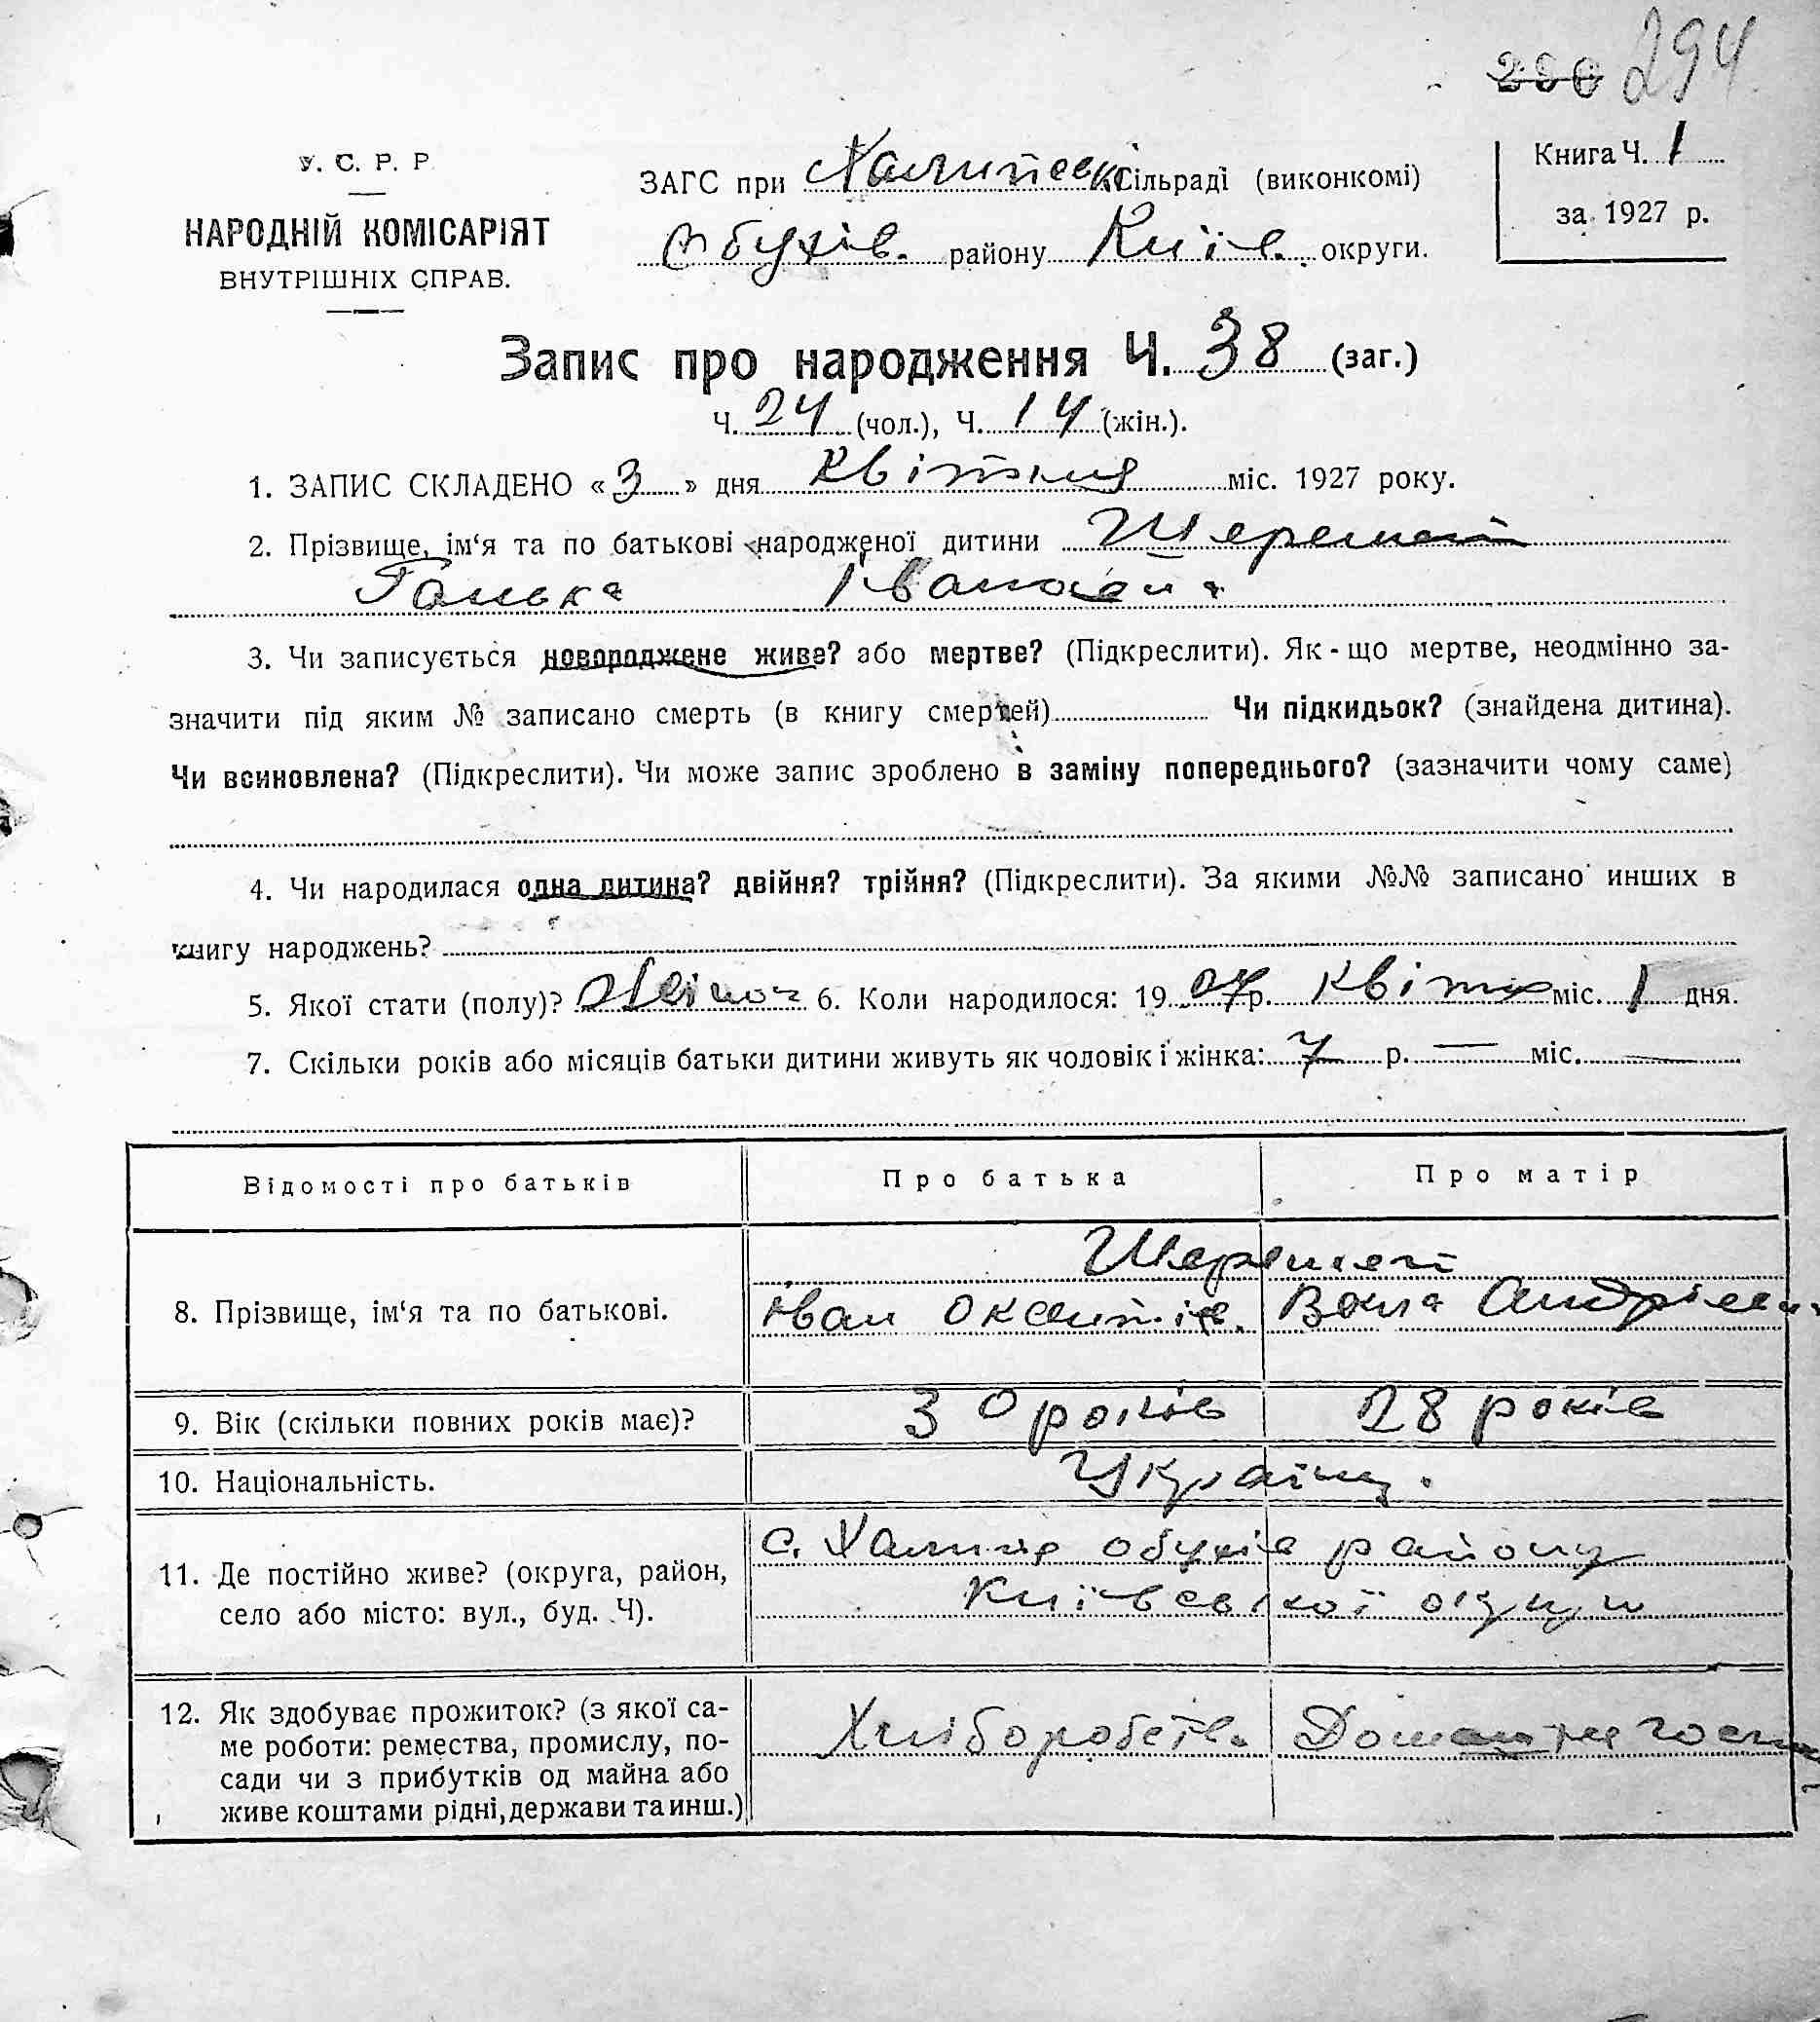 290 294
У. С. Р. Р.
НАРОДНІЙ КОМІСАРІЯТ
ВНУТРІШНІХ СПРАВ.
ЗАГС при Халипській Сільраді (виконкомі)
Обухів. району Київ. округи.
Книга Ч. 1
за 1927 р.
Запис про народження Ч. 38 (заг.)
Ч. 24 (чол.), Ч. 14 (жін.).
1. ЗАПИС СКЛАДЕНО «3» дня Квітня міс. 1927 року.
2. Прізвище, ім‘я та по батькові народженої дитини Шеремет
Ганька Івановна
3. Чи записується новороджене живе? або мертве? (Підкреслити). Як-що мертве, неодмінно за-
значити під яким № записано смерть (в книгу смертей) Чи підкидьок? (знайдена дитина).
Чи всиновлена? (Підкреслити). Чи може запис зроблено в заміну попереднього? (зазначити чому саме)
4. Чи народилася одна дитина? двійня? трійня? (Підкреслити). За якими №№ записано инших в
книгу народжень?
5. Якої стати (полу)? Жіноч 6. Коли народилося: 1927 р. Квітня міс. 1 дня.
7. Скільки років або місяців батьки дитини живуть як чоловік і жінка: 7 р. — міс. —
Відомості про батьків Про батька Про матір
Шеремет
8. Прізвище, ім‘я та по батькові. Іван Оксентів. Векла Андріевна
9. Вік (скільки повних років має)? 30 років 28 років
10. Національність. Україн.
11. Де постійно живе? (округа, район, с. Халипя обухів району
село або місто: вул., буд. Ч). Київської округи
12. Як здобуває прожиток? (з якої са-
ме роботи: ремества, промислу, по- Хліборобств. Домашня госп
сади чи з прибутків од майна або
живе коштами рідні, держави та инш.)